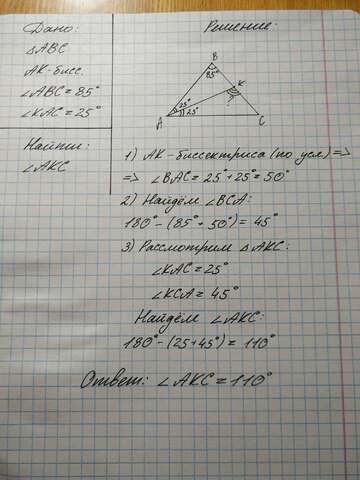 Дано:
△ABC
AK-бисс.
∠ABC = 85°
∠KAC = 25°
Найти:
∠AKC
Решение:
B
85°
K
?
25°
25°
A
C
1) AK-биссектриса (по усл) =>
=> ∠BAC = 25° + 25° = 50°
2) Найдём ∠BCA:
180° - (85° + 50°) = 45°
3) Рассмотрим △AKC:
∠KAC = 25°
∠KCA = 45°
Найдём ∠AKC:
180° - (25 + 45°) = 110°
Ответ: ∠AKC = 110°